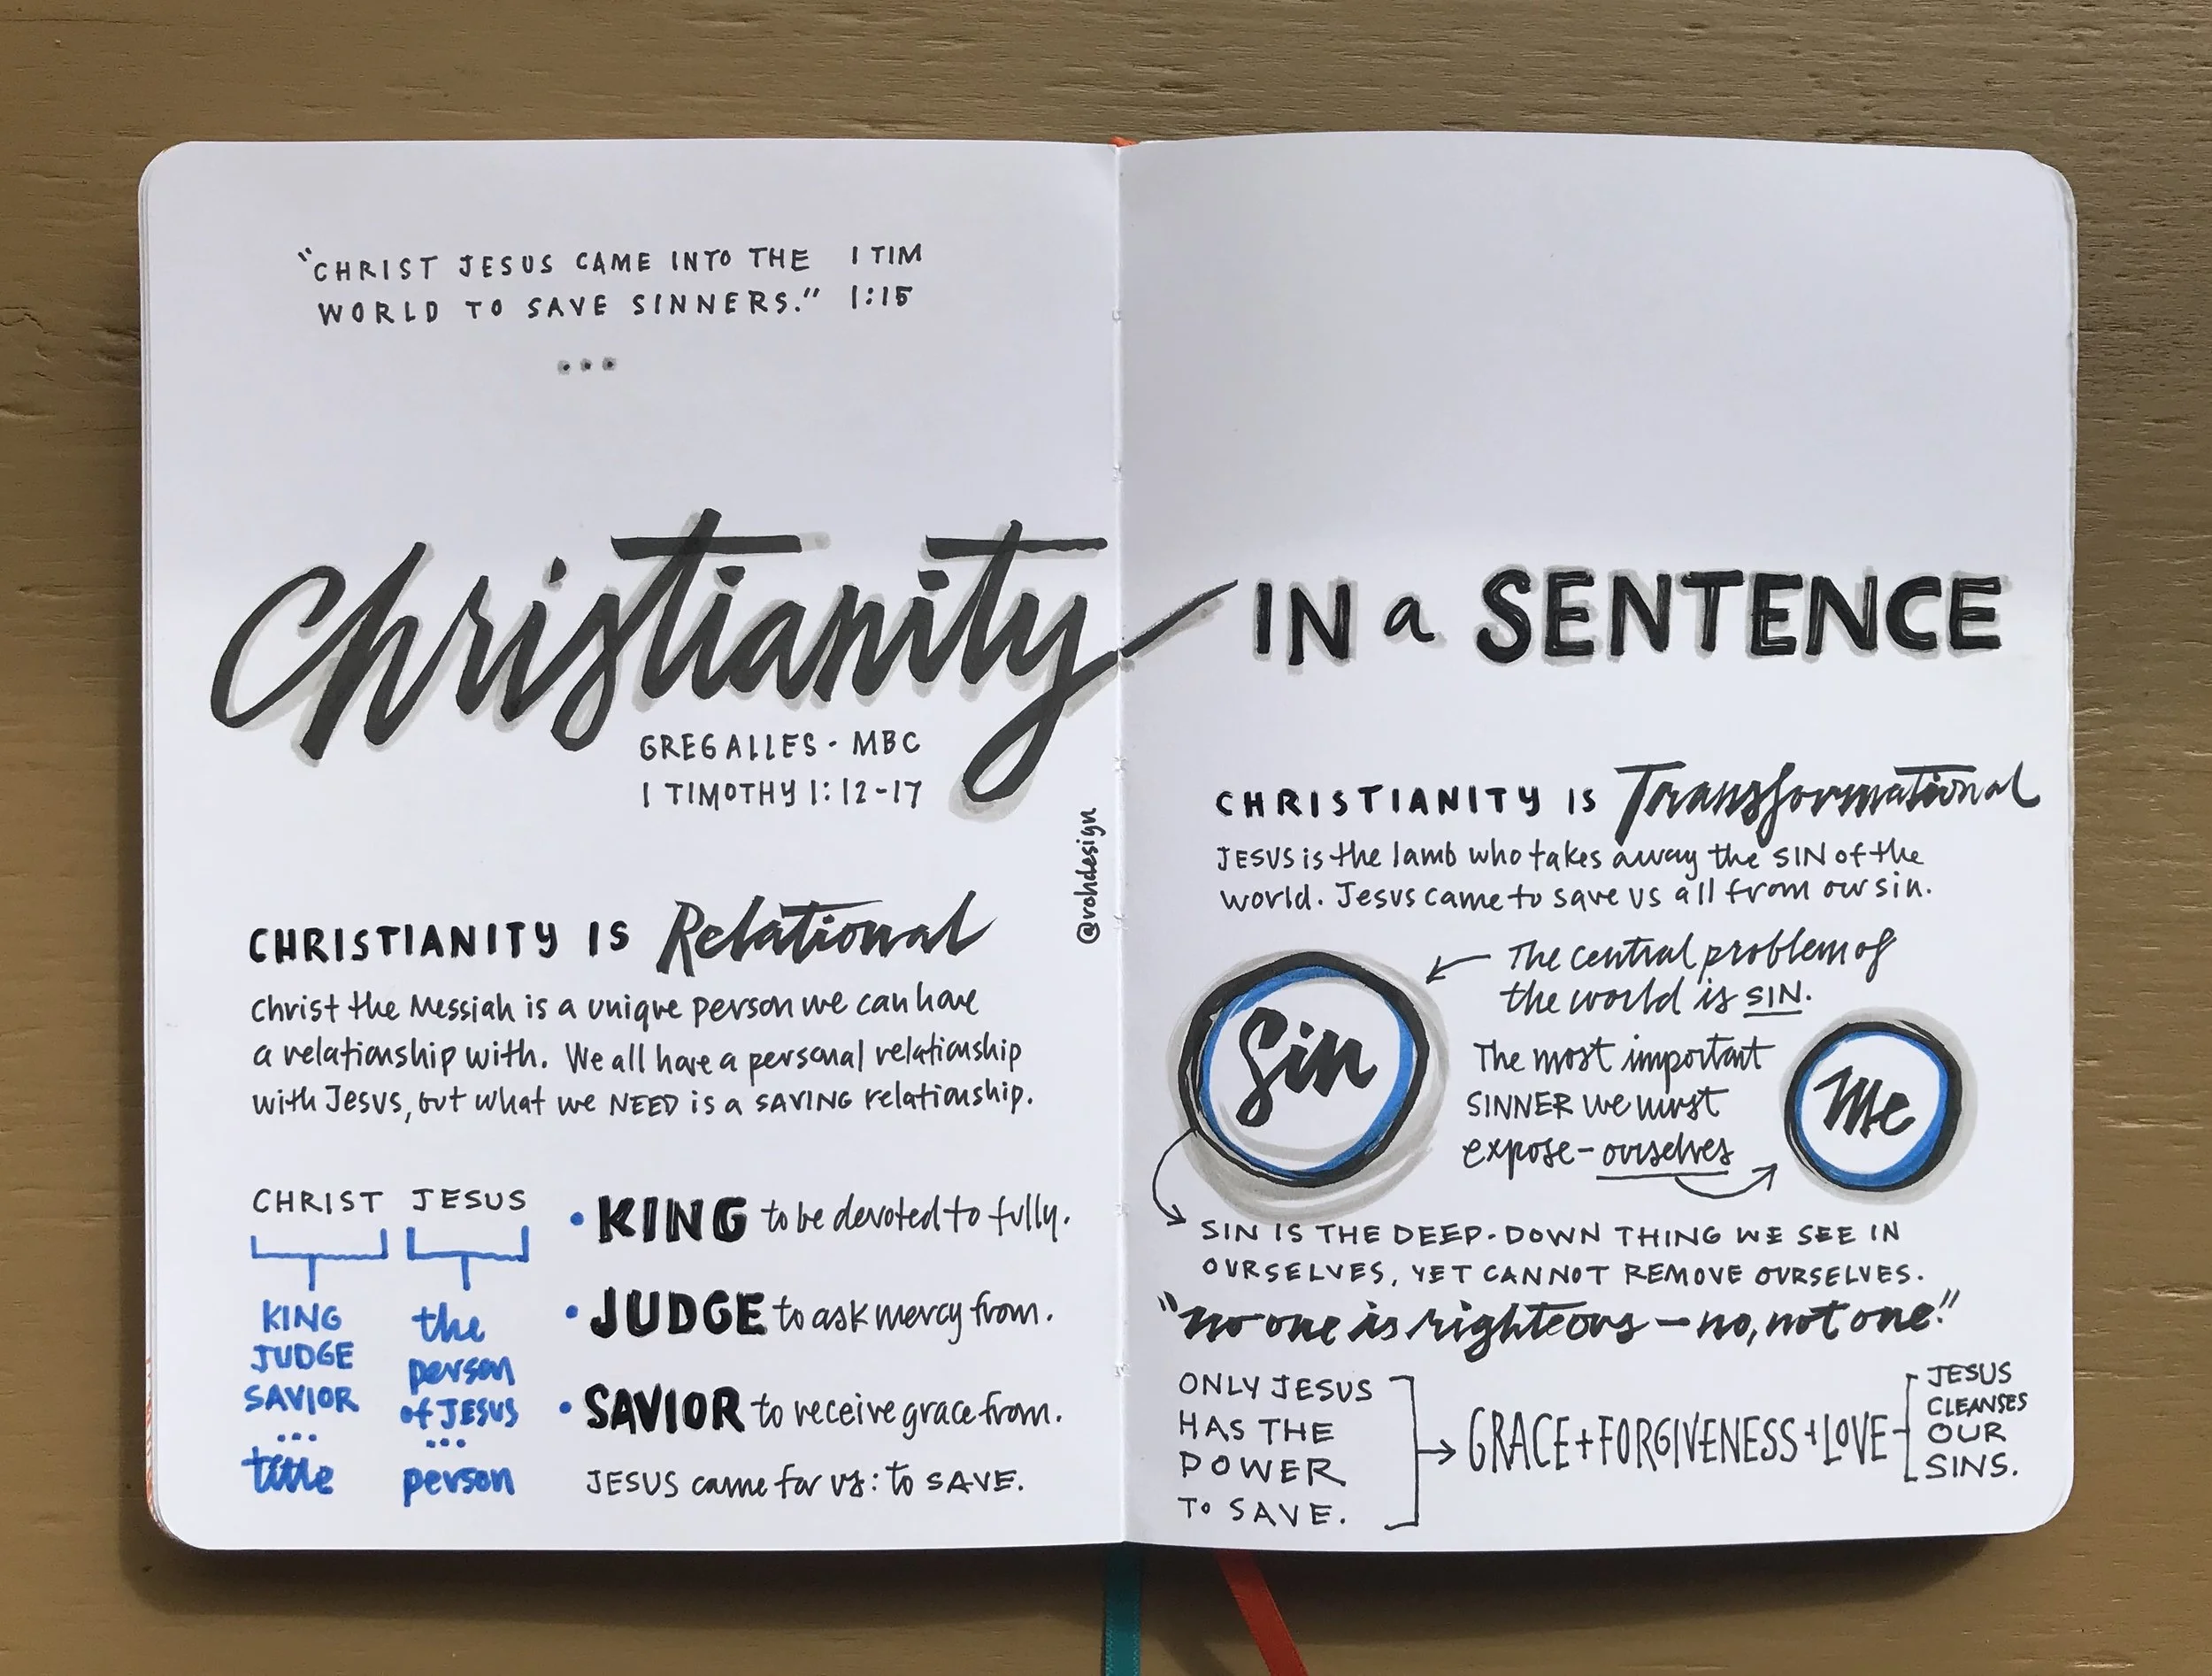 "CHRIST JESUS CAME INTO THE
WORLD TO SAVE SINNERS."
1 TIM
1:15
Christianity IN a SENTENCE
GREG ALLES - MBC
1 TIMOTHY 1:12-17
@rohdesign
CHRISTIANITY IS Relational
Christ the Messiah is a unique person we can have
a relationship with. We all have a personal relationship
with Jesus, but what we NEED is a SAVING relationship.
CHRIST JESUS
KING
JUDGE
SAVIOR
...
title
the
person
of JESUS
...
person
• KING to be devoted to fully.
• JUDGE to ask mercy from.
• SAVIOR to receive grace from.
JESUS came for us: to SAVE.
CHRISTIANITY IS Transformational
JESUS is the lamb who takes away the SIN of the
world. Jesus came to save us all from our sin.
Sin
The central problem of
the world is SIN.
The most important
SINNER we must
expose - ourselves
Me
SIN IS THE DEEP-DOWN THING WE SEE IN
OURSELVES, YET CANNOT REMOVE OURSELVES.
"no one is righteous - no, not one."
ONLY JESUS
HAS THE
POWER
TO SAVE.
GRACE + FORGIVENESS + LOVE
JESUS
CLEANSES
OUR
SINS.